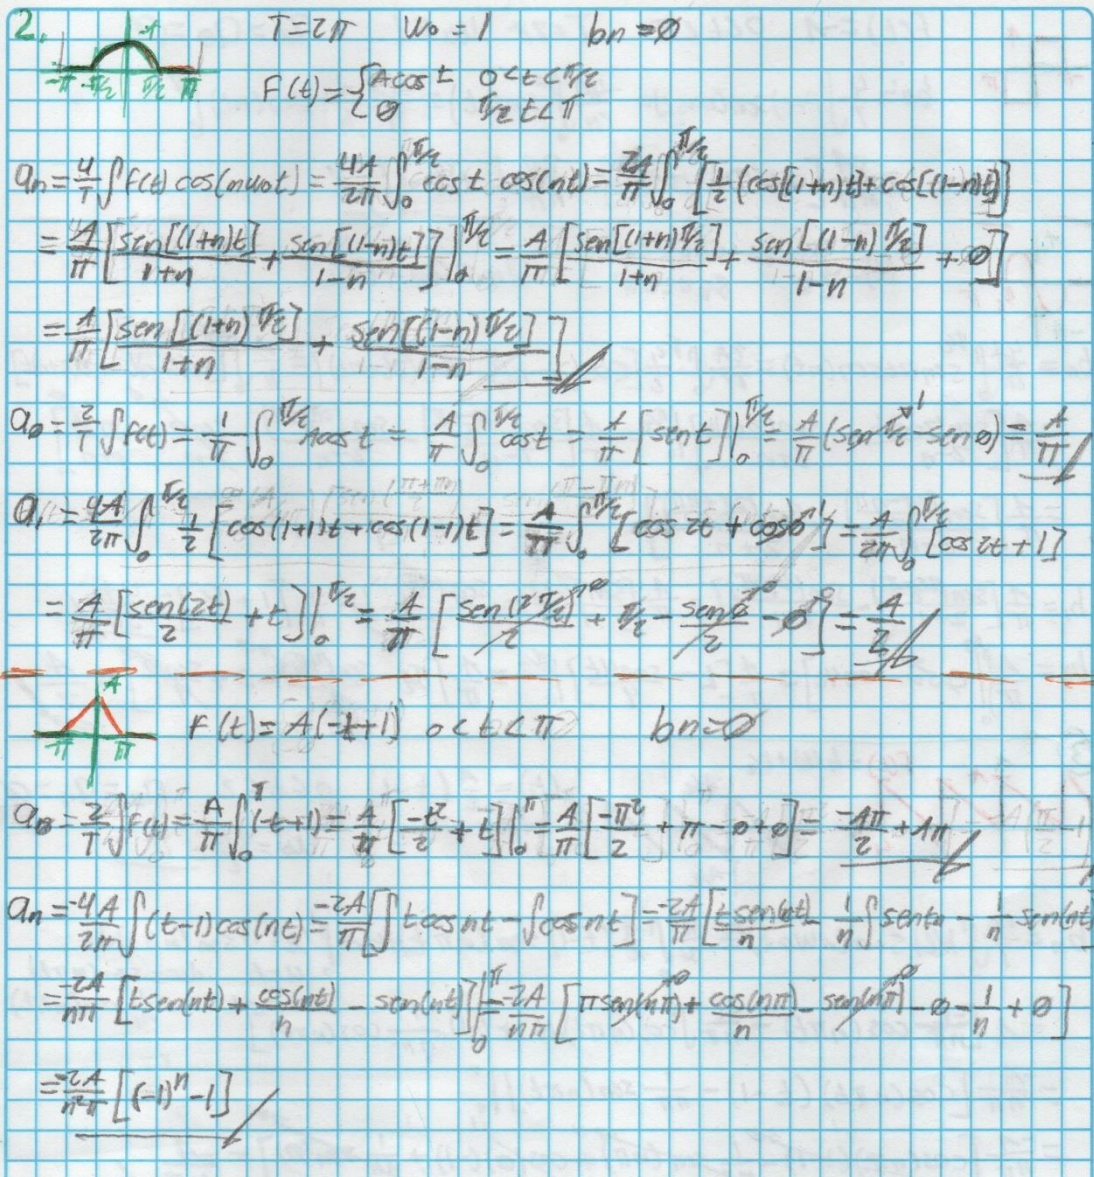 2. A T=2π W₀=1 bn=∅
-π -π/2 π/2 π
F(t)={Acos t 0<t<π/2
∅ π/2 t<π
an=4/T∫f(t) cos(nw₀t)=4A/2π∫₀^π/2 cos t cos(nt)=2A/π∫₀^π/2[1/2(cos[(1+n)t]+cos[(1-n)t])]
=A/π[sen[(1+n)t]/1+n+sen[(1-n)t]/1-n]|₀^π/2=A/π[sen[(1+n)π/2]/1+n+sen[(1-n)π/2]/1-n+∅]
=A/π[sen[(1+n)π/2]/1+n+sen[(1-n)π/2]/1-n]
a∅=2/T∫f(t)=1/π∫₀^π/2 Acos t=A/π∫₀^π/2 cos t=A/π[sen t]|₀^π/2=A/π(sen π/2 ↗1 -sen ∅)=A/π
a₁=4A/2π∫₀^π/2 1/2[cos(1+1)t+cos(1-1)t]=A/π∫₀^π/2[cos 2t+cos∅ ↗1]=A/2π∫₀^π/2[cos 2t+1]
=A/π[sen(2t)/2+t]|₀^π/2=A/π[sen(2π/2)/2 ↗∅ +π/2-sen∅/2 ↗∅ -∅]=A/2
A
-π π F(t)=A(-t+1) 0<t<π bn=∅
a∅=2/T∫f(t)=A/π∫₀^π(-t+1)=A/π[-t²/2+t]|₀^π=A/π[-π²/2+π-0+∅]=-Aπ/2+Aπ
an=-4A/2π∫(t-1)cos(nt)=-2A/π[∫t cos nt-∫cos nt]=-2A/π[t sen(nt)/n-1/n∫sen tn-1/n sen(nt)
=-2A/nπ[t sen(nt)+cos(nt)/n-sen(nt)]|₀^π=-2A/nπ[π sen(nπ) ↗∅ +cos(nπ)/n-sen(nπ) ↗∅ -∅-1/n+∅]
=-2A/n²π[(-1)ⁿ-1]